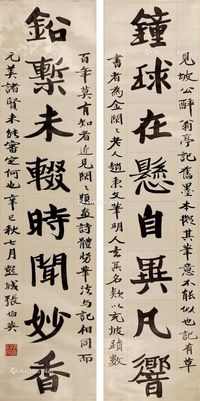 鐘球在懸自異凡響
鉛槧未輟時聞妙香
見坡公醉翁亭記舊墨本擬其筆意不能似也記有草
書者為金閶老人趙東文筆明人去其名款以充坡蹟數
百年莫有知者近見閑閑題畫詩體勢筆法与記相同而
元美諸賢未能審定何也辛巳秋七月彭城張伯英